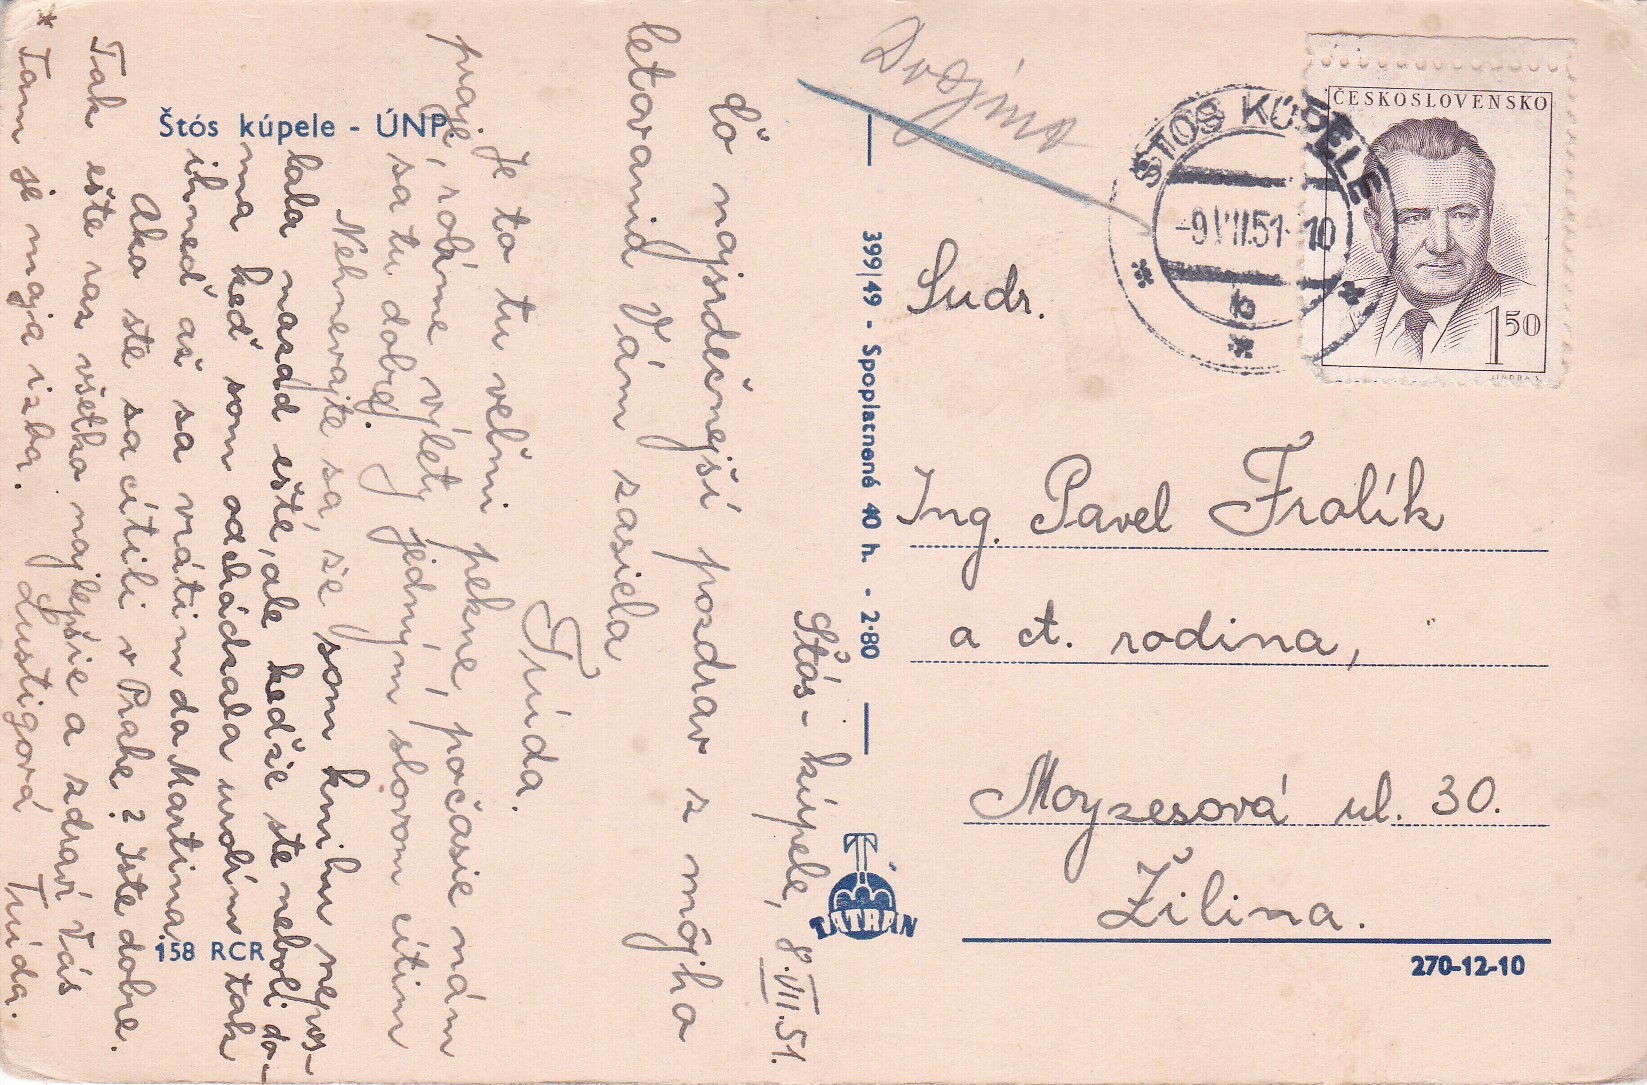 Štós kúpele - ÚNP.
Štós-kúpele, 8.VII.51.
Čo najsrdečnejší pozdrav z môjho
letovania Vám zasiela
Trúda.
Je to tu veľmi pekne, počasie nám
praje, robíme výlety jedným slovom cítim
sa tu dobre.
Nehnevajte sa, že som knihu nepos-
lala nazad ešte, ale kedže ste neboli do-
ma keď som odchádzala urobím tak
ihneď až sa vrátim do Martina.
Ako ste sa cítili v Prahe? Iste dobre.
Tak ešte raz všetko najlepšie a zdraví Vás
Lustigová Trúda.
* Tam je moja izba.
158 RCR
399/49 - Spoplatnené 40 h. - 2·80
TATRAN
Dvojmo
ŠTÓS KÚPELE
-9.VII.51-10
ČESKOSLOVENSKO
1 50
Sudr.
Ing. Pavel Frolík
a ct. rodina,
Moyzesová ul. 30.
Žilina.
270-12-10